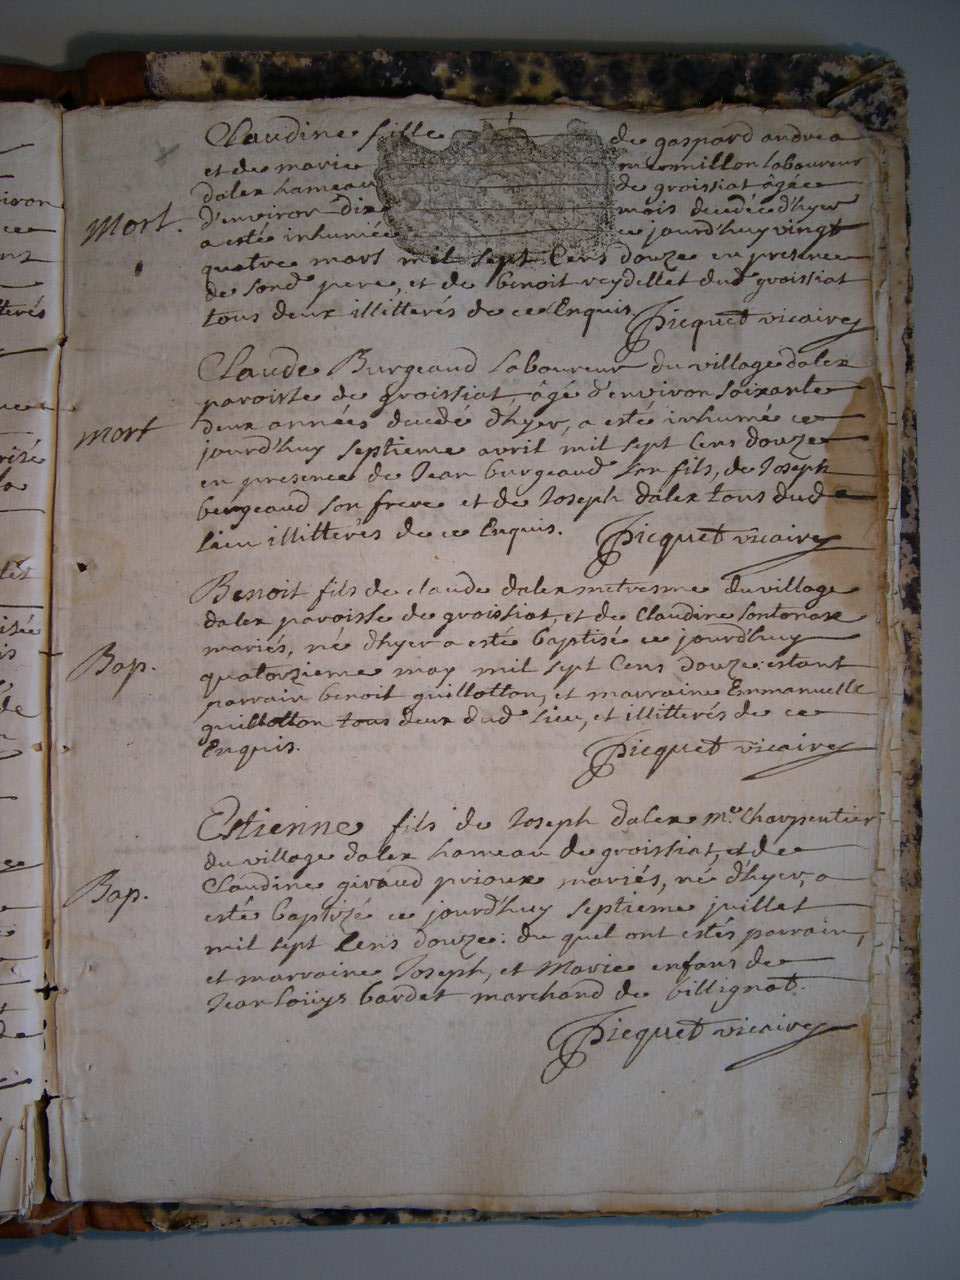 Claudine fille de gaspard andrea
et de marie mermillon laboureur
dalex hameau de groissiat âgée
Mort. d'environ dix mois decedée d'hyer
a esté inhumée ce jourd'huy vingt
quatre mars mil sept Cens douze en presence
de sond pere, et de benoit reydellet dud groissiat
tous deux illitterés de ce Enquis. Picquet vicaire
Claude Burgeaud laboureur du village dalex
paroisse de groissiat, âgé d'environ soixante
mort deux années decedé d'hyer, a esté inhumé ce
jourd'huy septieme avril mil sept Cens douze
en presence de Jean burgeaud son fils, de Joseph
burgeaud son frere et de Joseph dalex tous dud
lieu illitterés de ce Enquis. Picquet vicaire
Benoit fils de claude dalex du village
dalex paroisse de groissiat, et de Claudine sontonax
mariés, né d'hyer a esté baptisé ce jourd'huy
Bap. quatorzieme may mil sept Cens douze: estant
parrain benoit guillotton, et marraine Emmanuelle
guillotton tous deux dud lieu, et illitterés de ce
Enquis. Picquet vicaire
Estienne fils de Joseph dalex me. Charpentier
du village dalex hameau de groissiat, et de
Bap. Claudine giraud prioux mariés, né d'hyer, a
esté baptizé ce jourd'huy septieme juillet
mil sept Cens douze: du quel ont estés parrain,
et marraine Joseph, et Marie enfans de
Jean loüys bardet marchand de billignat.
Picquet vicaire